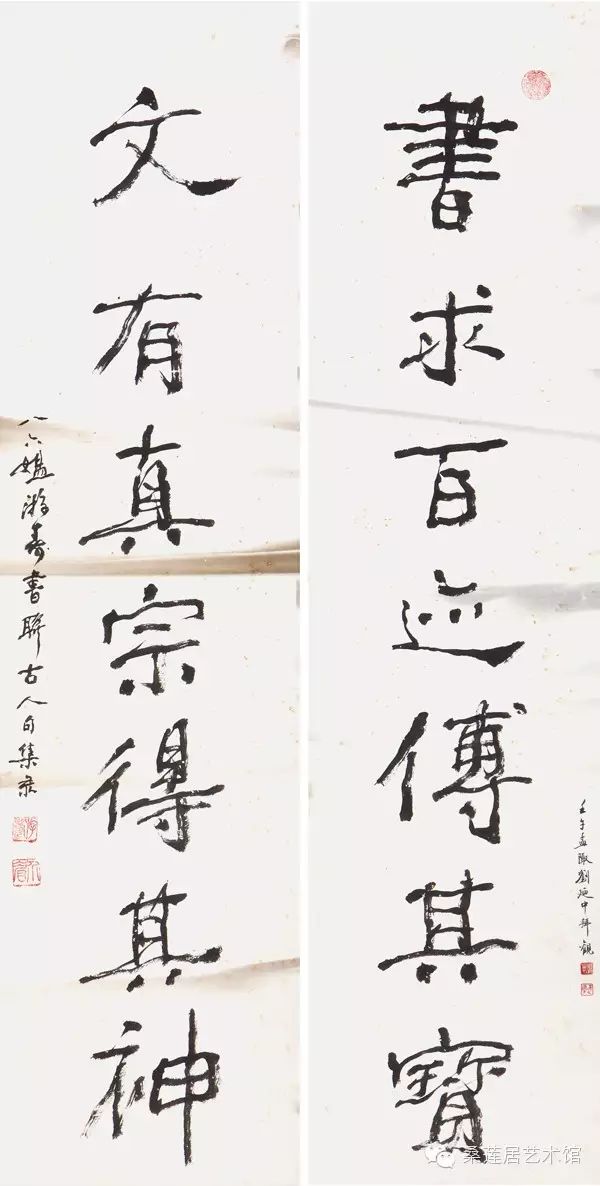 書求百迹傳其寶
壬午孟陬劉廼中拜觀
文有真宗得其神
八六媪游寿書聯古人句集录
桑莲居艺术馆